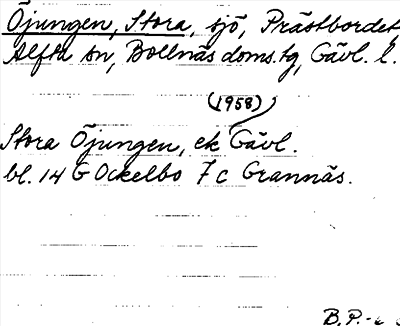 Öjungen, Stora, sjö, Prästbordet
Alfta sn, Bollnäs doms.tg, Gävl. l.
(1958)
Stora Öjungen, ek Gävl.
bl. 14 G Ockelbo 7 c Grannäs.
B.P.-